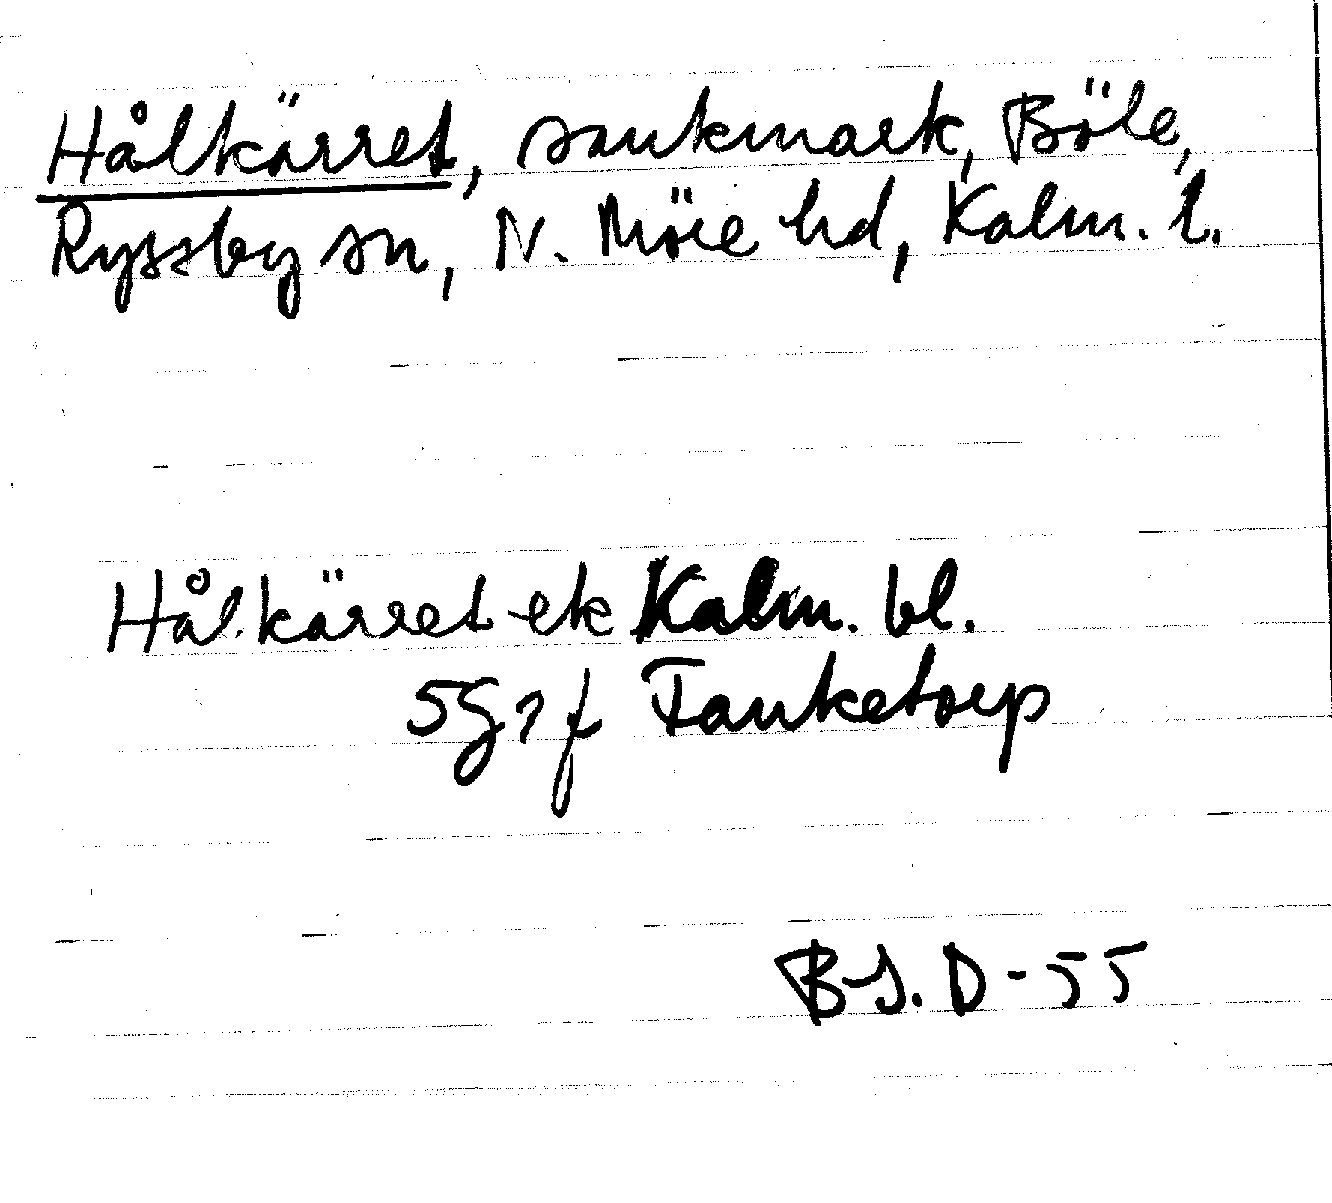 Hålkärret, sankmark, Böle,
Ryssby sn, N. Möre hd, Kalm. l.
Hålkärret ek Kalm. bl.
5G7f Tanketorp
B-J. D-55